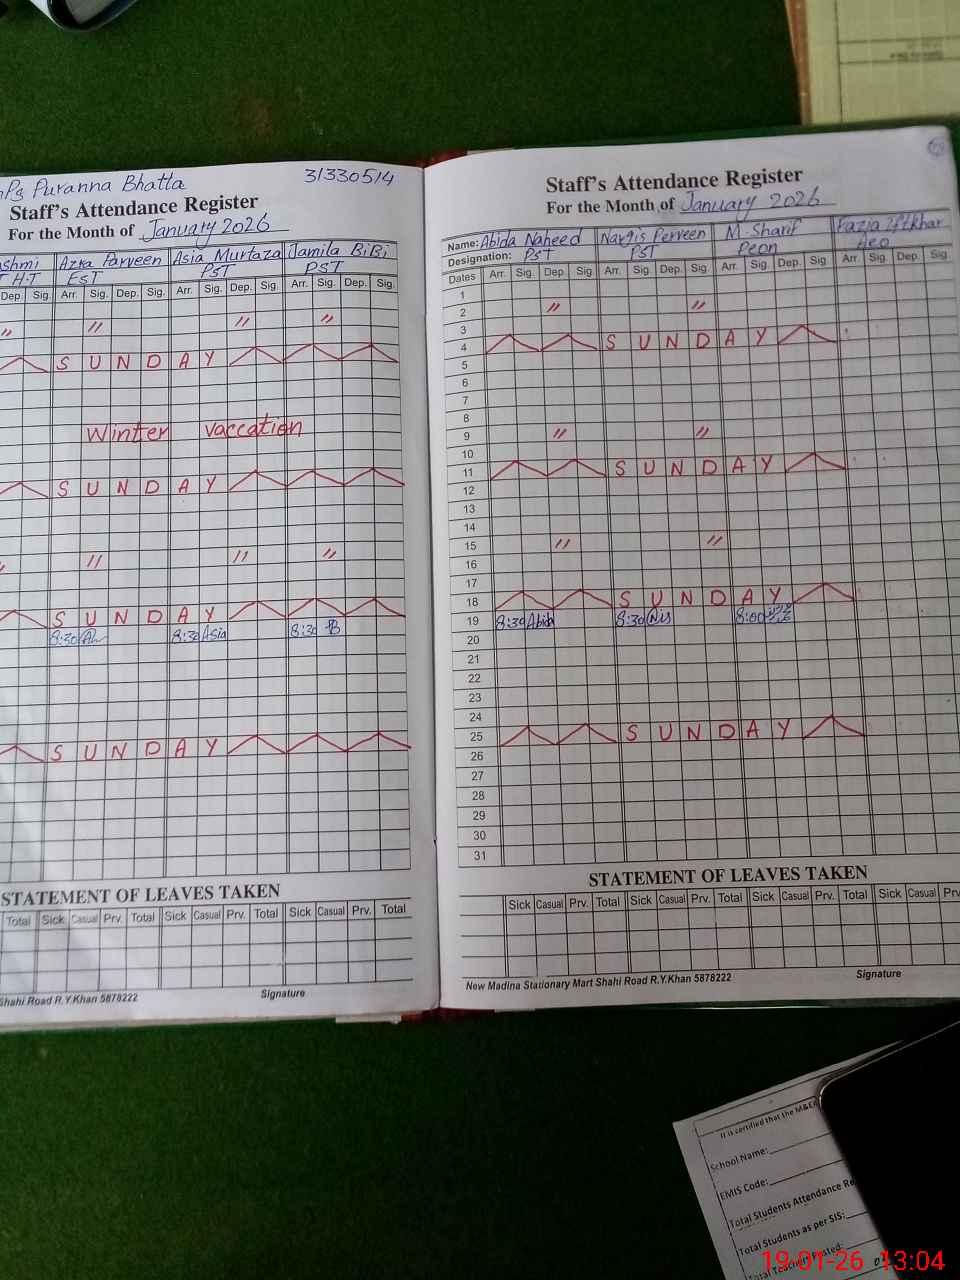 Ps Puranna Bhatta 31330514
Staff's Attendance Register
For the Month of January 2026
shmi Azra Parveen Asia Murtaza Jamila BiBi
H.T EST PST PST
Dep. Sig. Arr. Sig. Dep. Sig. Arr. Sig. Dep. Sig. Arr. Sig. Dep. Sig.
" " " "
SUNDAY
Winter vaccation
SUNDAY
" " " "
SUNDAY
8:30 8:30 Asia 8:30
SUNDAY
STATEMENT OF LEAVES TAKEN
Total Sick Casual Prv. Total Sick Casual Prv. Total Sick Casual Prv. Total
Shahi Road R.Y.Khan 5878222
Signature
Staff's Attendance Register
For the Month of January 2026
Name: Abida Naheed Nargis Perveen M-Sharif Fazia Iftkhar
Designation: PST PST Peon Aeo
Dates Arr. Sig. Dep. Sig. Arr. Sig. Dep. Sig. Arr. Sig. Dep. Sig. Arr. Sig. Dep. Sig.
1
2 " "
3
4 SUNDAY
5
6
7
8
9 " "
10
11 SUNDAY
12
13
14
15 " "
16
17
18 SUNDAY
19 8:30 Abid 8:30 8:00
20
21
22
23
24
25 SUNDAY
26
27
28
29
30
31
STATEMENT OF LEAVES TAKEN
Sick Casual Prv. Total Sick Casual Prv. Total Sick Casual Prv. Total Sick Casual Prv.
New Madina Stationary Mart Shahi Road R.Y.Khan 5878222
Signature
It is certified that the M&EA
School Name:
EMIS Code:
Total Students Attendance Re
Total Students as per SIS:
Total Teachers Posted:
19-01-26 13:04